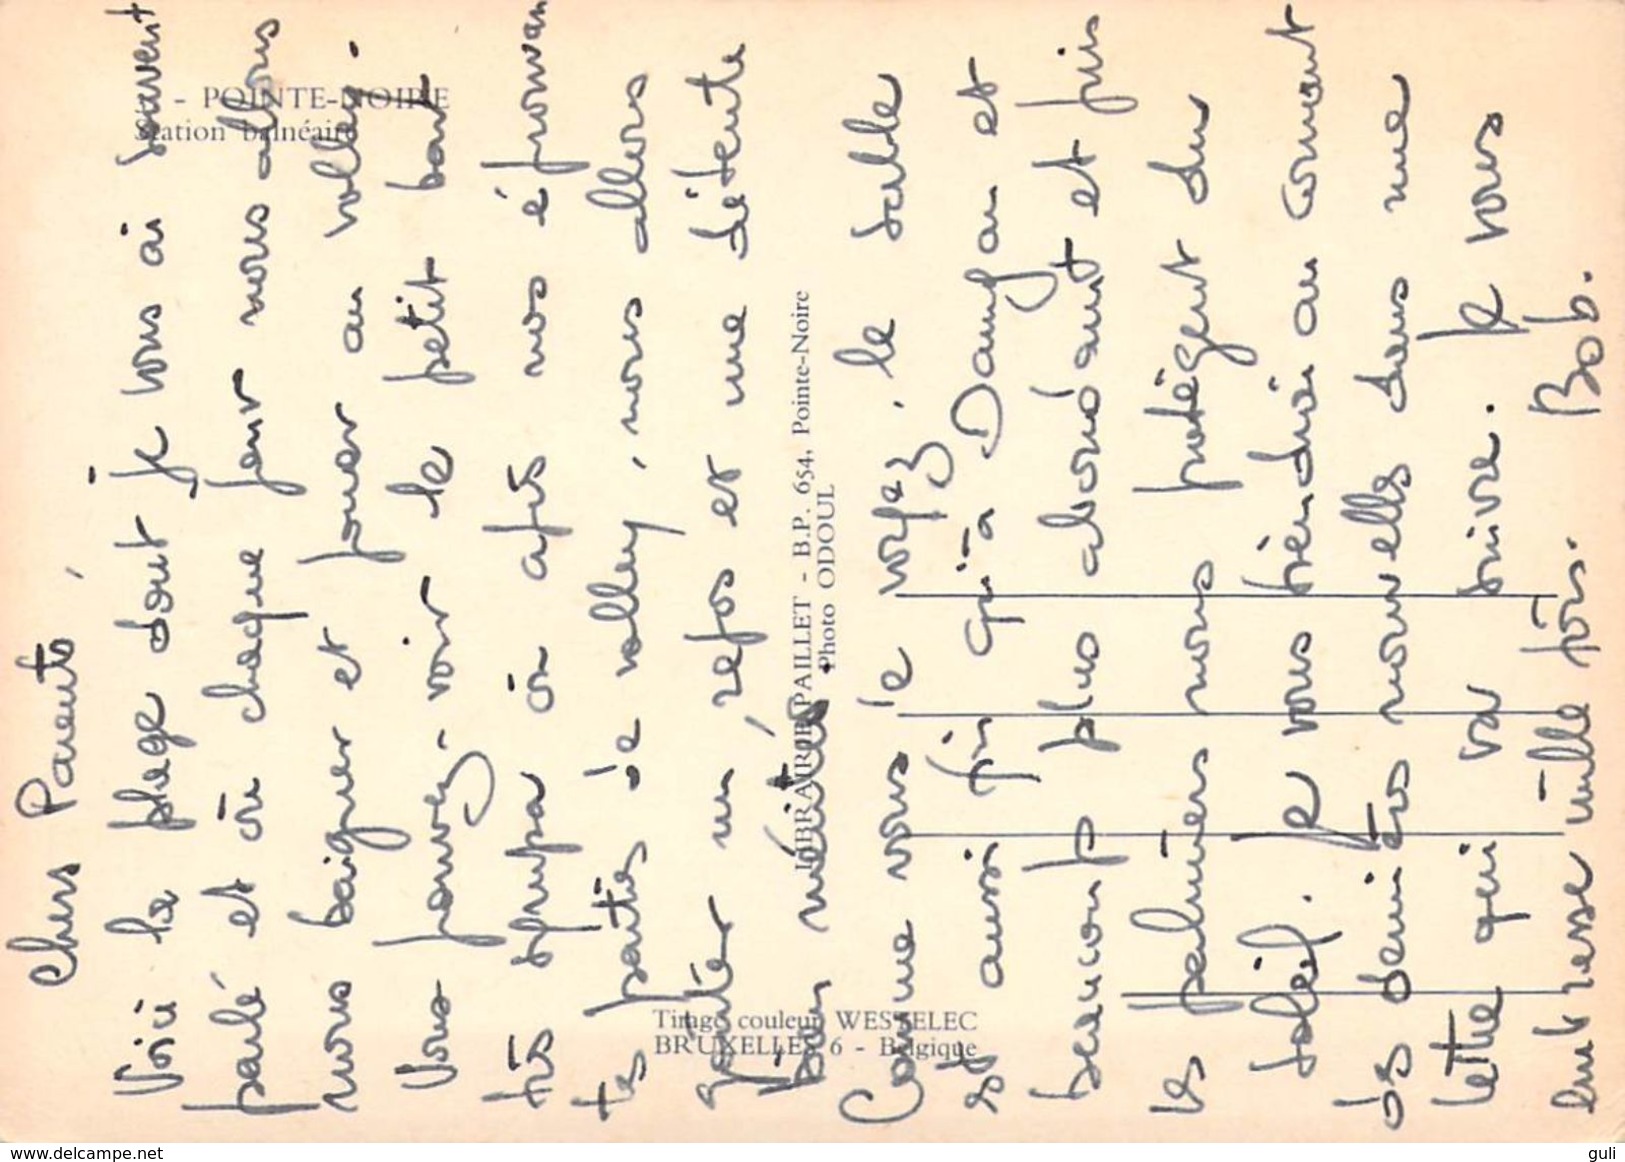 - POINTE-NOIRE
Station balnéaire
LIBRAIRIE PAILLET - B.P. 654, Pointe-Noire
Photo ODOUL
Tirage couleur WESTELEC
BRUXELLES 6 - Belgique
Chers Parents,
Voici la plage dont je vous ai souvent
parlé et où chaque jour nous allons
nous baigner et jouer au volley.
Vous pouvez voir le petit bar
très sympa où après nos éprouvan
tes parties de volley, nous allons
goûter un repos et une détente
bien mérités
Comme vous le voyez, le sable
est aussi fin qu'à Dangan et
beaucoup plus abondant et puis
les palmiers nous protègent du
soleil. Je vous tiendrai au courant
des dernières nouvelles dans une
lettre qui va suivre. Je vous
embrasse mille fois. Bob.
www.delcampe.net
guli